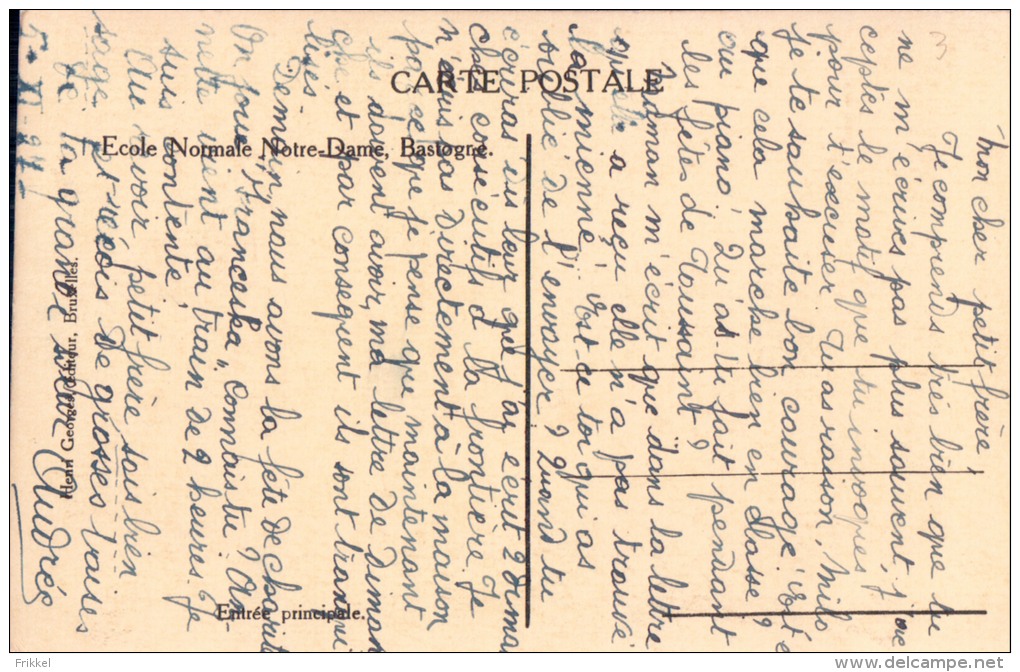 CARTE POSTALE
Ecole Normale Notre-Dame, Bastogne.
Entrée principale.
Henri Georges, éditeur, Bruxelles.
Mon cher petit frère,
Je comprends très bien que tu
ne m'écrives pas plus souvent, j'ac
ceptes le motif que tu invoques
pour t'excuser. Tu as raison, Milo
Je te souhaite bon courage. Est-ce
que cela marche bien en classe ?
au piano ? Qu'as-tu fait pendant
les fêtes de Toussaint ?
Maman m'écrit que dans la lettre
qu'elle a reçu elle n'a pas trouvé
la mienne. Est-ce toi qui as
oublié de l'envoyer ? Quand tu
écriras dis leur que j'ai écrit 2 diman
ches consécutifs à la frontière. Je
n'ai pas directement à la maison
parce que je pense que maintenant
ils doivent avoir, ma lettre de diman
che et par conséquent ils sont tranqui
lisés.
Demain, nous avons la fête de
On joue "Franceska", connais tu ? An-
nette vient au train de 2 heures. Je
suis contente.
Au revoir, petit frère sois bien
sage et reçois de grosses baises
de ta grande sœur Andrée
5-XI-27
© Frikkel
http://www.delcampe.net